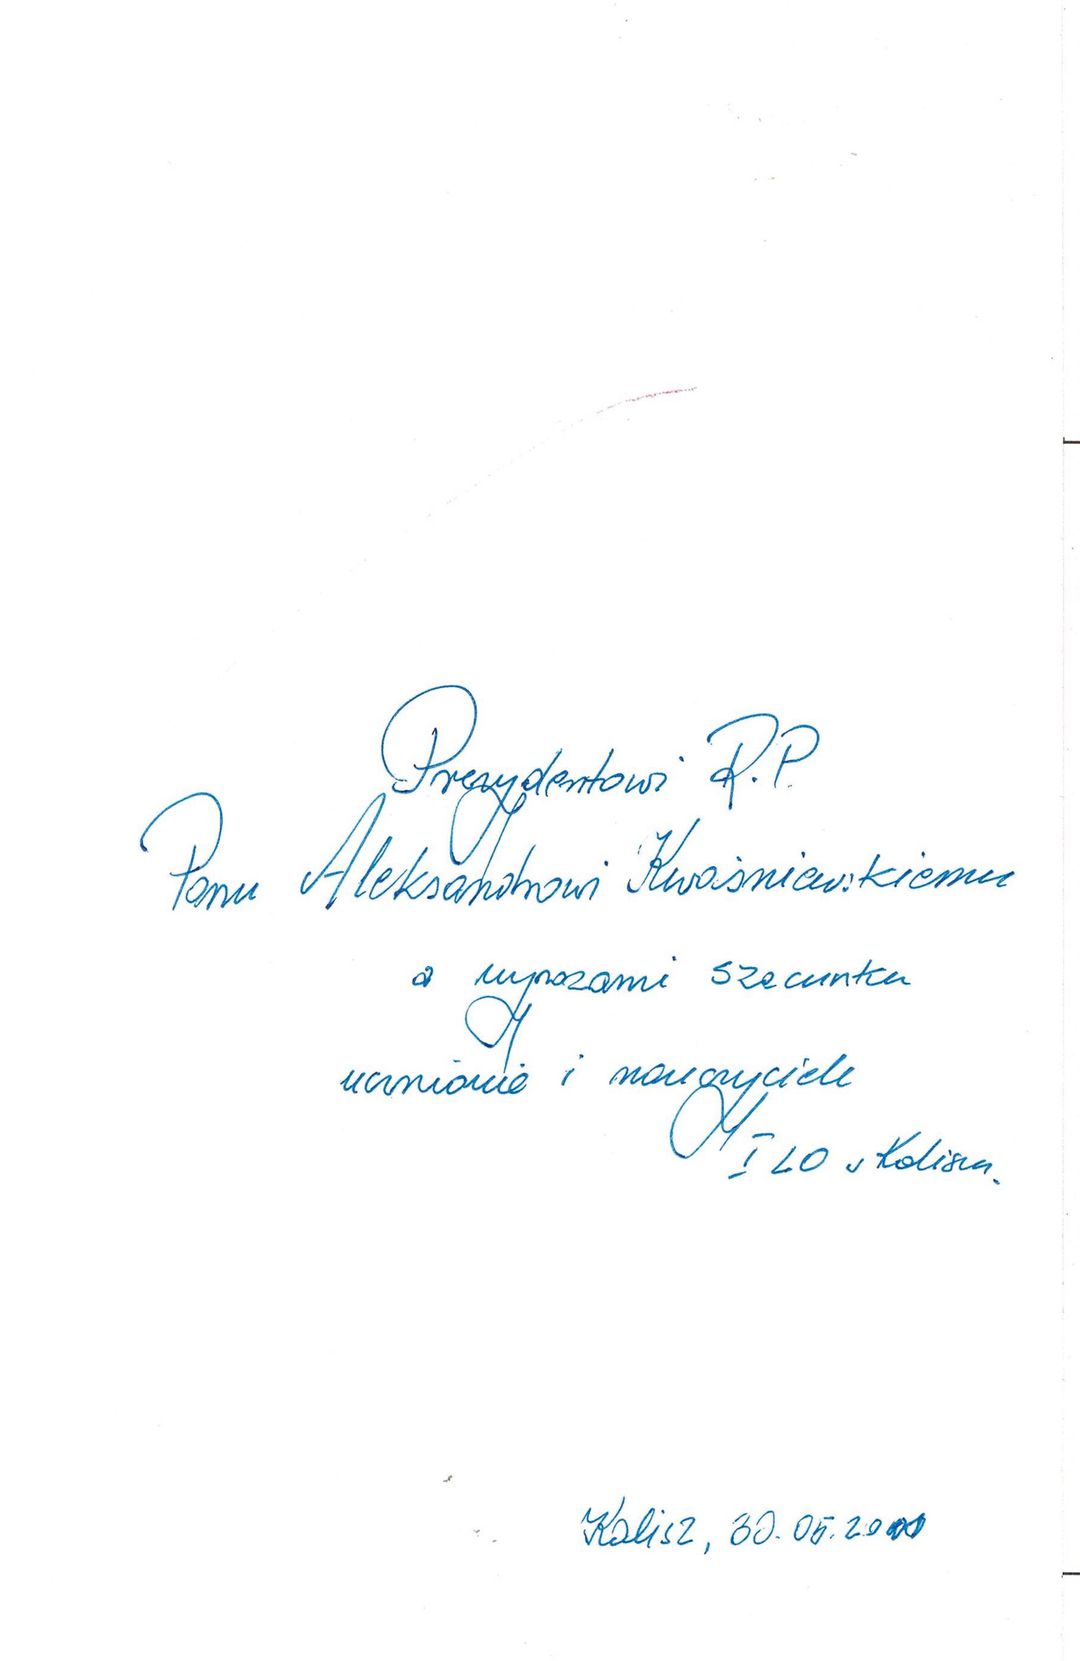 Prezydentowi R.P.
Panu Aleksandrowi Kwaśniewskiemu
z wyrazami szacunku
uczniowie i nauczyciele
I LO w Kaliszu.
Kalisz, 30.05.2000